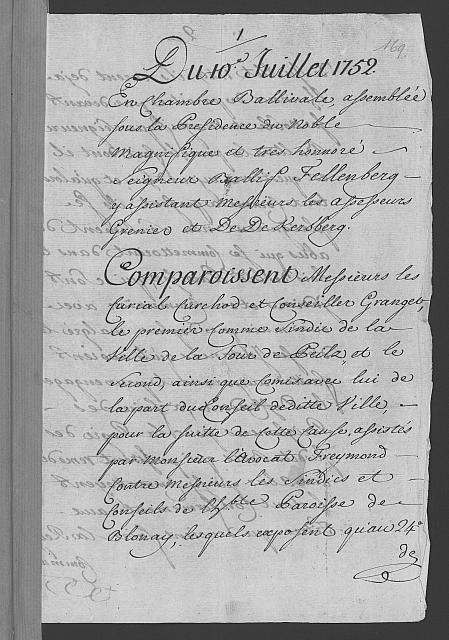 1
169.
Du 10.e Juillet 1752.
En Chambre Ballivale, assemblée
sous la Presidence du Noble
Magnifique et très honnoré
Seigneur Ballif Fellenberg
y assistant Messieurs les assesseurs
Grenier et De De Kersberg.
Comparoissent Messieurs les
Curial Curchod et Conseiller Granget,
le premier comme Sindic de la
Ville de la Tour de Peilz, et le
second, ainsi que Comis avec lui de
la part du Conseil de ditte Ville,
pour la suitte de cette Cause, assistés
par Monsieur l'Avocat Freymond
Contre Messieurs les Sindics et
Conseils de l'h.ble Paroisse de
Blonay, lesquels exposent qu'au 24.e
de